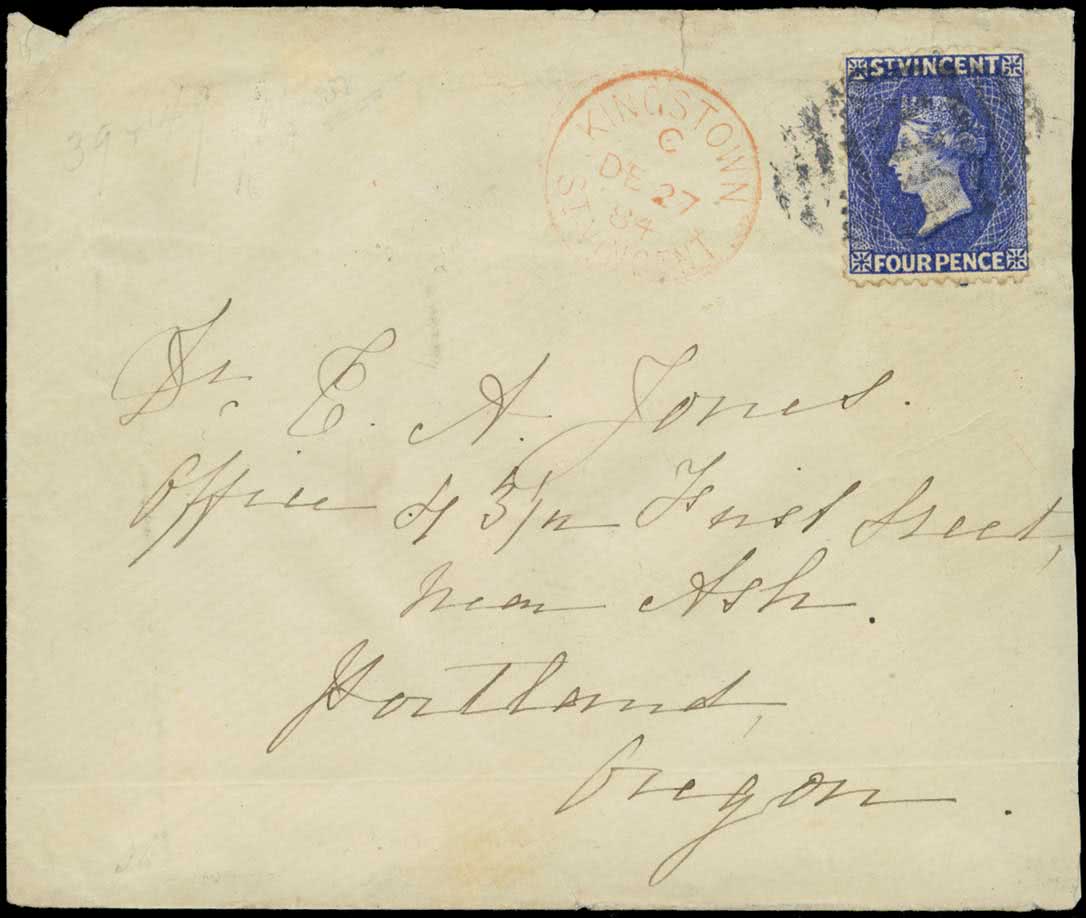 ST VINCENT
FOUR PENCE
KINGSTOWN
C
DE 27
84
ST VINCENT
Dr. E. A. Jones.
Office 4 3/n First Street,
near Ash.
Portland,
Oregon.